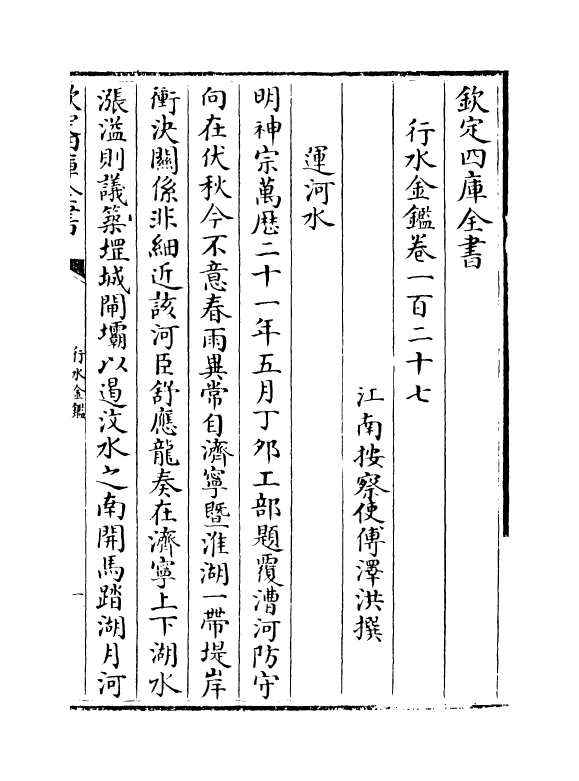 欽定四庫全書
行水金鑑卷一百二十七
江南按察使傅澤洪撰
運河水
明神宗萬厯二十一年五月丁夘工部題覆漕河防守
向在伏秋今不意春雨異常自濟寧暨淮湖一帶堤岸
衝決關係非細近該河臣舒應龍奏在濟寧上下湖水
漲溢則議築堽城閘壩以遏汶水之南開馬踏湖月河
欽定四庫全書
行水金鑑
一